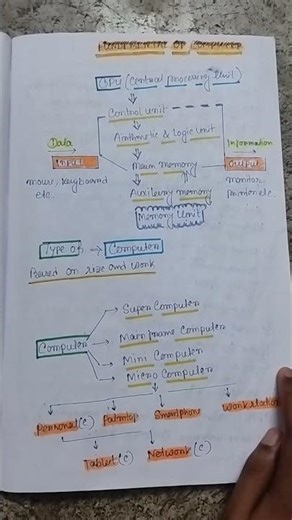 Fundamental of Computer
CPU (Central processing Unit)
Control unit
Arithmetic & logic unit
Data
Information
Input
Main memory
Output
mouse, Keyboard
etc.
monitor,
printer etc
Auxiliary memory
Memory Unit
Type of → Computer
Based on size and work
Super Computer
Mainframe Computer
Computer
Mini Computer
Micro Computer
Personal (C)
Palmtop
Smartphone
Workstation
Tablet (C)
Network (C)